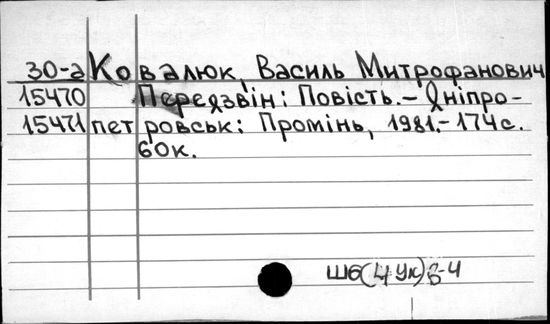 30-а Ковалюк, Василь Митрофанович
15470 Передзвін: Повість.- Дніпро-
15471 петровськ: Промінь, 1981.-174с.
60к.
Ш6(4Ук)6-4